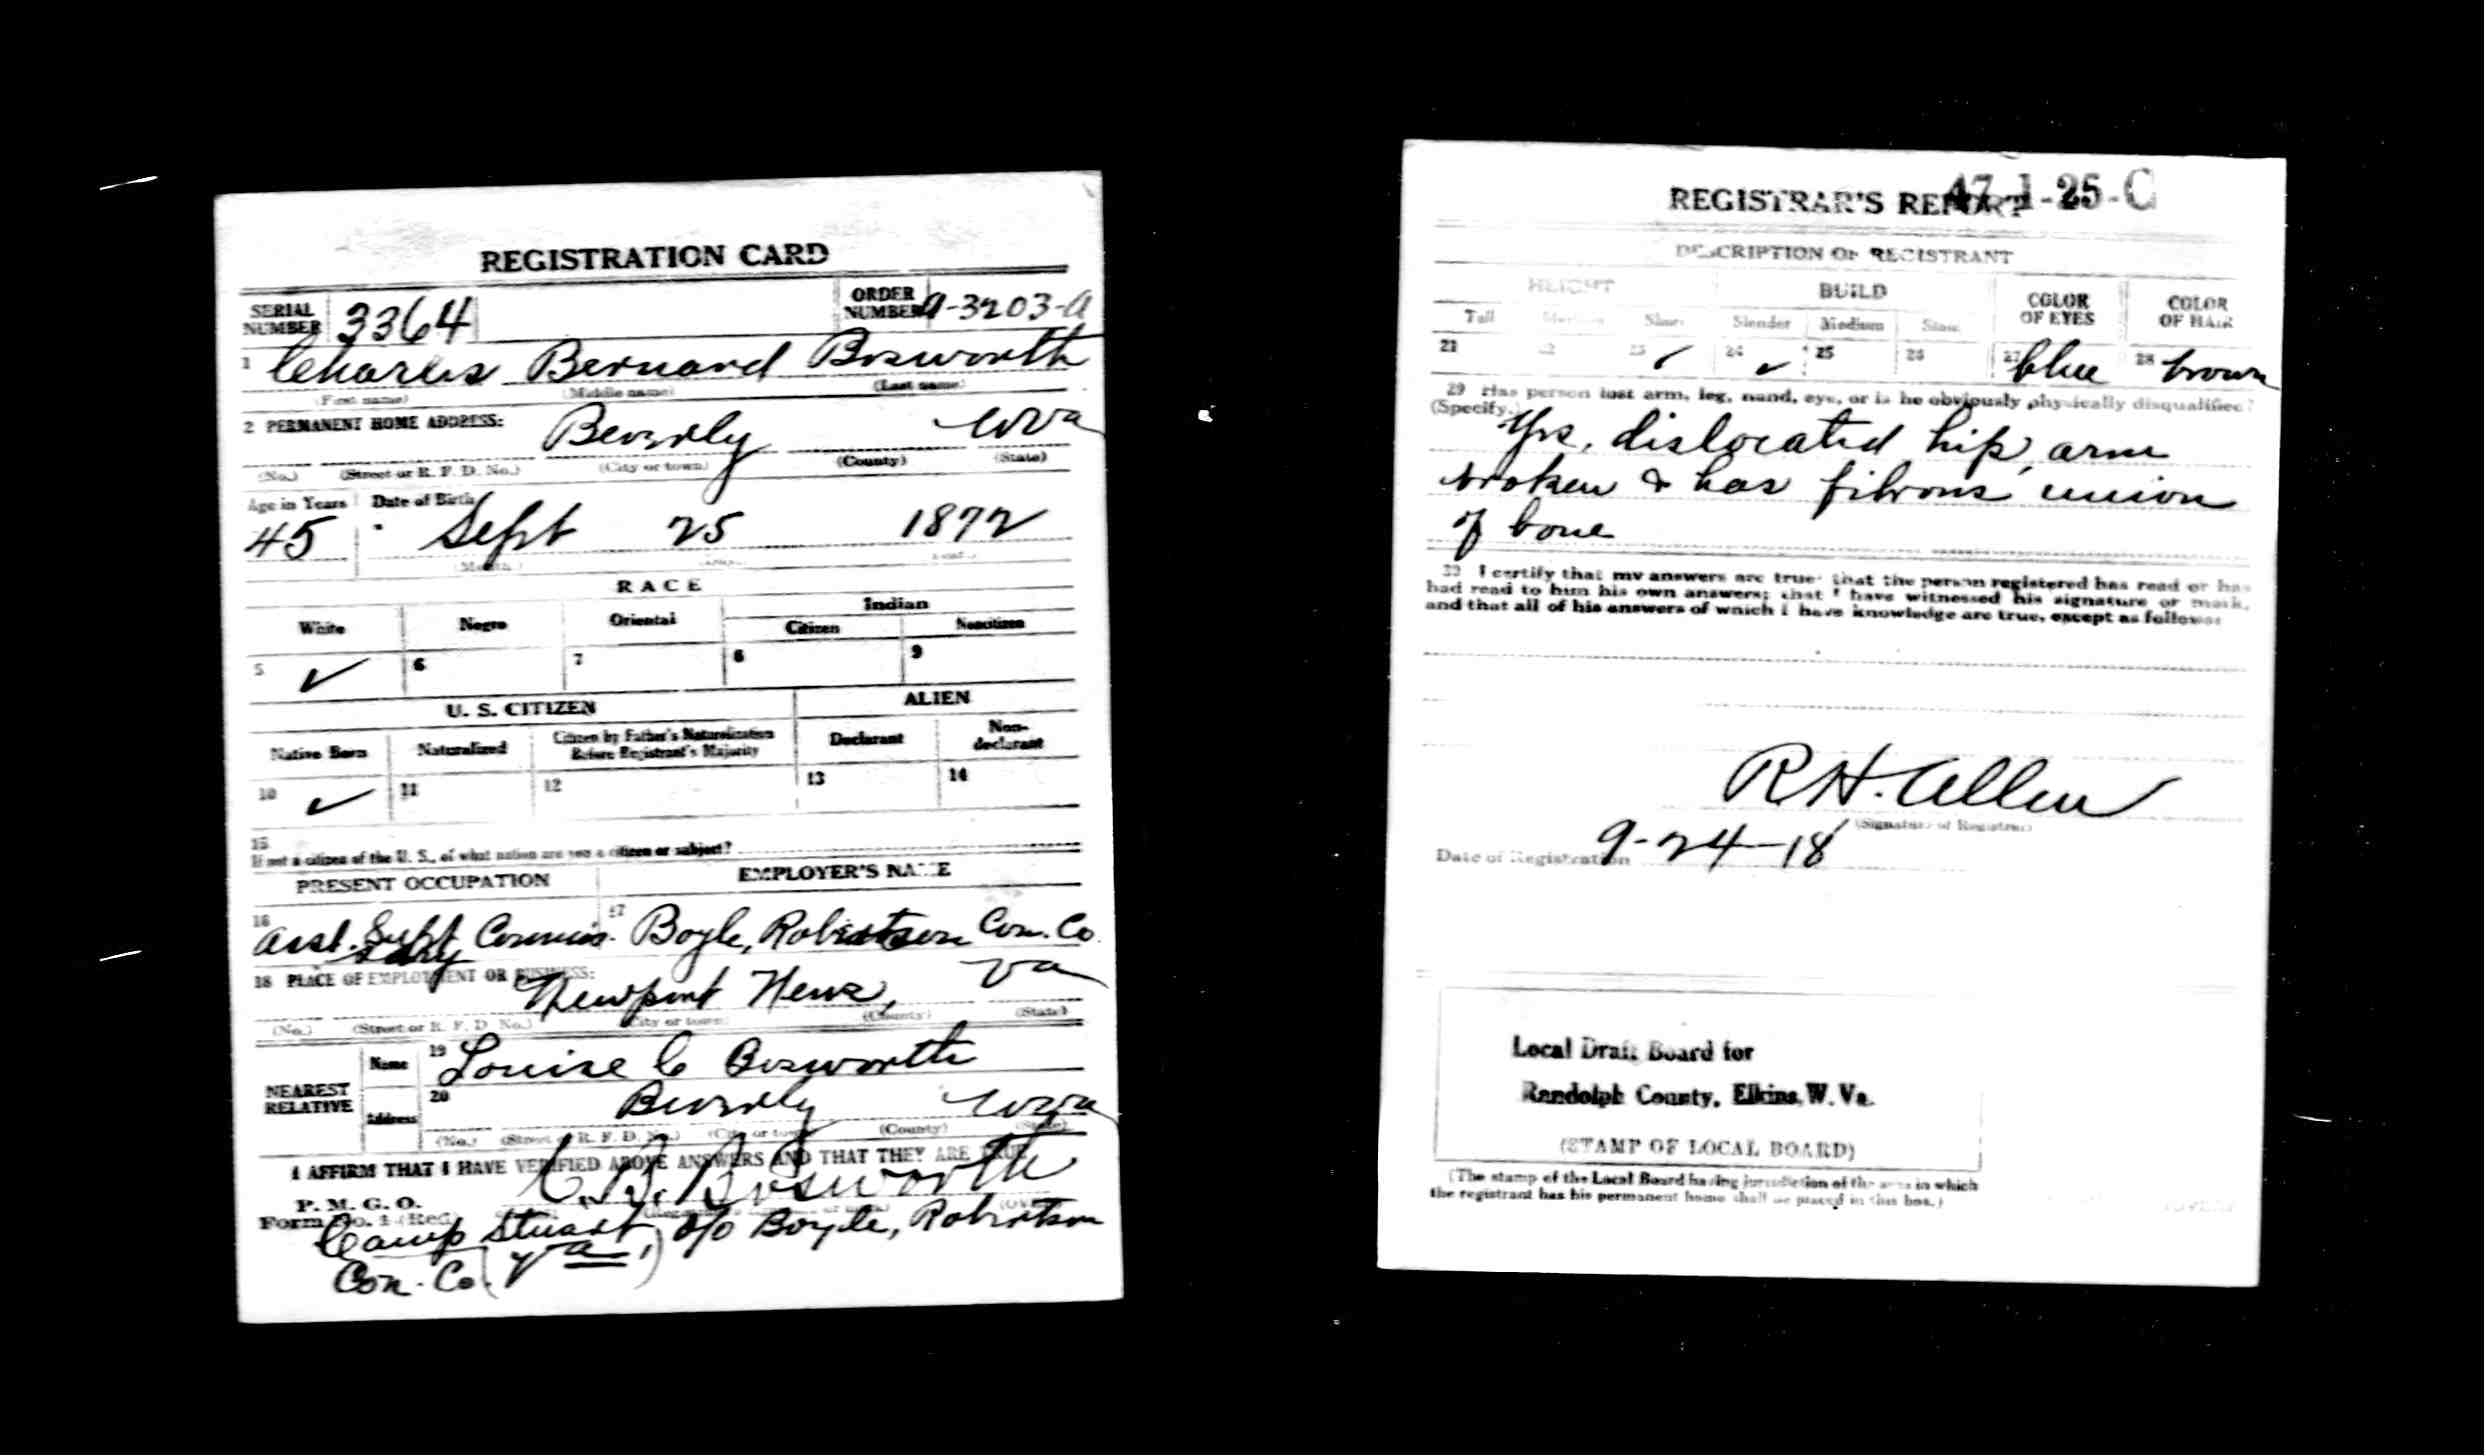 REGISTRATION CARD
SERIAL NUMBER 3364 ORDER NUMBER A-3203-A
1 Charles Bernard Bosworth
(First name) (Middle name) (Last name)
2 PERMANENT HOME ADDRESS: Beverly WVa
(No.) (Street or R. F. D. No.) (City or town) (County) (State)
Age in Years Date of Birth
45 Sept 25 1872
(Month.)
RACE
White Negro Oriental Indian
Citizen Noncitizen
5 ✓ 6 7 8 9
U. S. CITIZEN ALIEN
Native Born Naturalized Citizen by Father's Naturalization Before Registrant's Majority Declarant Non-declarant
10 ✓ 11 12 13 14
15
If not a citizen of the U. S., of what nation are you a citizen or subject?
PRESENT OCCUPATION EMPLOYER'S NAME
16 Asst. Supt Commis. 17 Boyle, Robertson Con. Co.
18 PLACE OF EMPLOYMENT OR BUSINESS: Newport News, Va
(No.) (Street or R. F. D. No.) (City or town) (County) (State)
NEAREST RELATIVE Name 19 Louise C Bosworth
Address 20 Beverly WVa
(No.) (Street or R. F. D. No.) (City or town) (County) (State)
I AFFIRM THAT I HAVE VERIFIED ABOVE ANSWERS AND THAT THEY ARE TRUE
C. B. Bosworth
P. M. G. O.
Form No. 1 (Red) (OVER)
Camp Stuart, c/o Boyle, Robertson
Con. Co. (Va.)
47-1-25-C
REGISTRAR'S REPORT
DESCRIPTION OF REGISTRANT
HEIGHT BUILD COLOR OF EYES COLOR OF HAIR
Tall Medium Short Slender Medium Stout
21 22 23 ✓ 24 ✓ 25 26 27 blue 28 brown
29 Has person lost arm, leg, hand, eye, or is he obviously physically disqualified?
(Specify.)
Yes, dislocated hip, arm
broken & has fibrous union
of bone
30 I certify that my answers are true; that the person registered has read or has
had read to him his own answers; that I have witnessed his signature or mark,
and that all of his answers of which I have knowledge are true, except as follows:
R H. Allen
(Signature of Registrar)
Date of Registration 9-24-18
Local Draft Board for
Randolph County, Elkins, W. Va.
(STAMP OF LOCAL BOARD)
(The stamp of the Local Board having jurisdiction of the area in which
the registrant has his permanent home shall be placed in this box.)